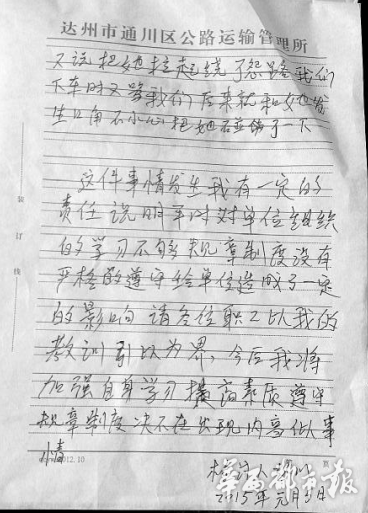 达州市通川区公路运输管理所
又说把她拉起绕了怨路我们
下车时又骂我们后来就和她发
生口角不小心把她石並伤了一下
这件事情发生我有一定的
责任说明平时对单位组织
的学习不够规章制度没有
严格的遵守给单位造成了一定
的影响请各位职工以我的
教训引以为界,今后我将
加强自身学习提高素质遵守
规章制度决不在出现内高似事
情
装订线
2012.10
检讨人
2015年元月5日
华西都市报